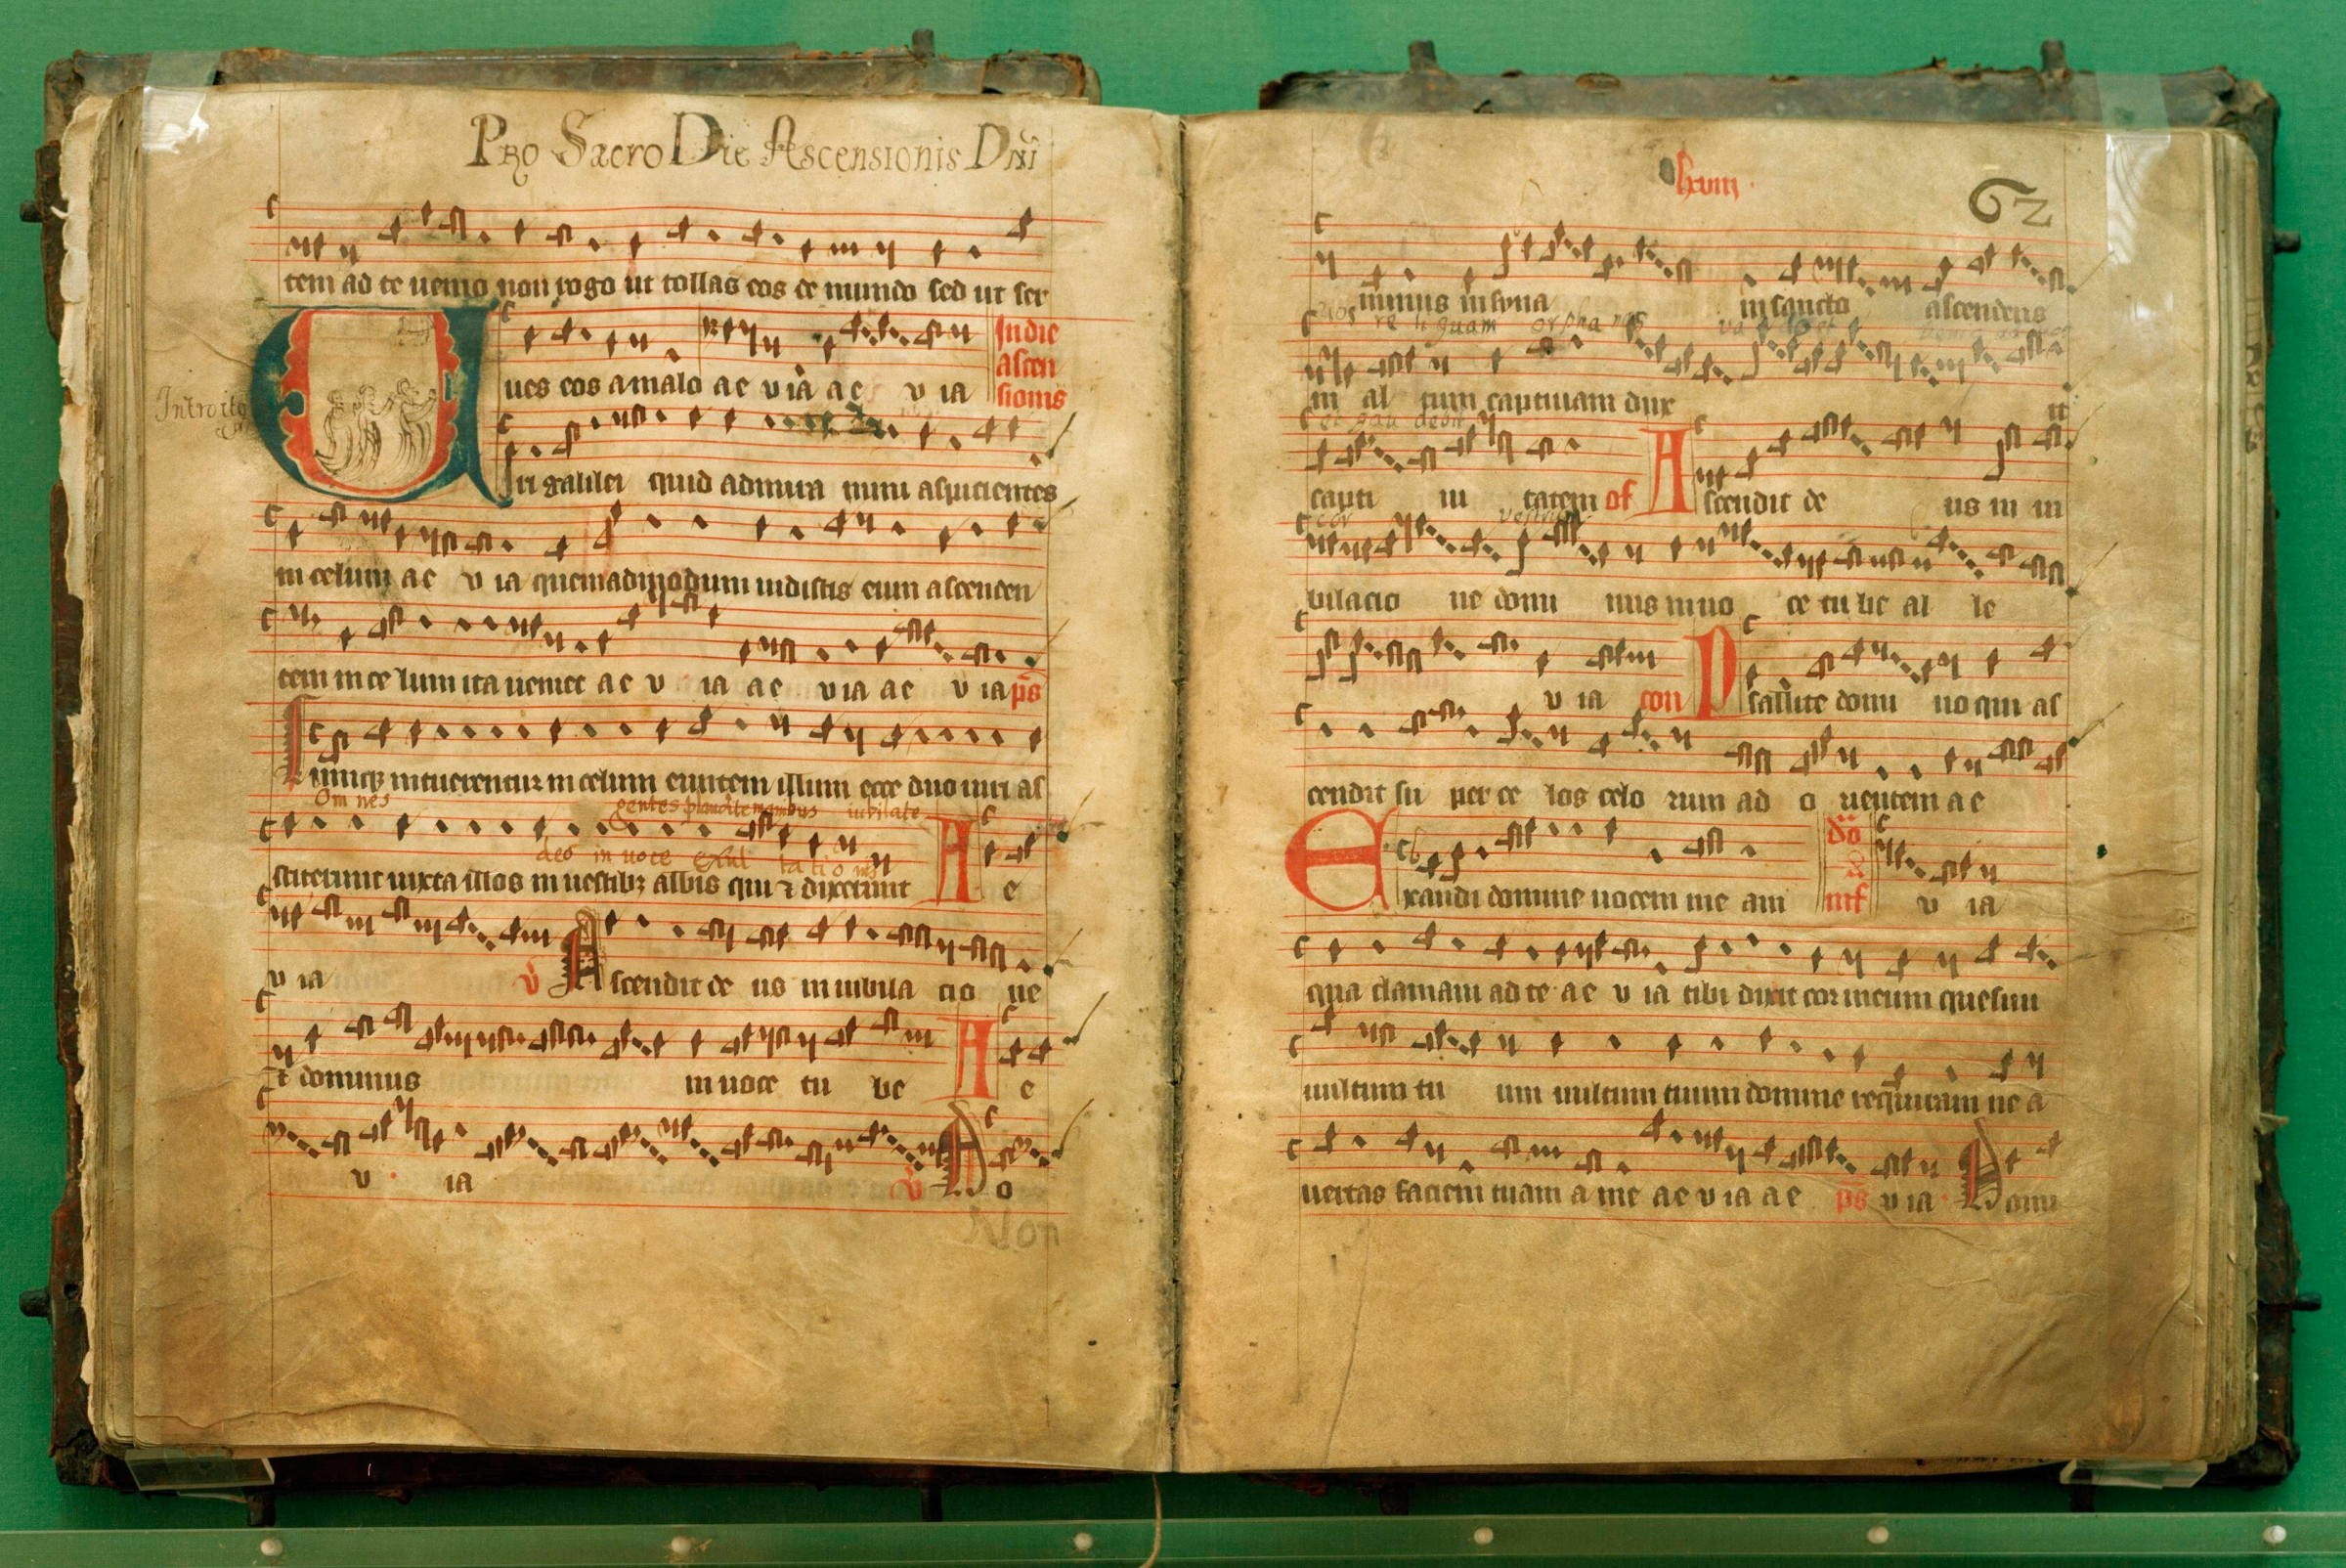 Pro Sacro Die Ascensionis Dni
tem ad te uenio non rogo ut tollas eos de mundo sed ut ser
ues eos a malo ae v ia ae v ia
In die
ascen
sionis
Introitg
Uiri galilei quid admira mini aspicientes
in celum ae v ia quemadmodum uidistis eum ascenden
tem in ce lum ita ueniet ae v ia ae v ia ae v ia ps
umq intuerentur in celum euntem illum ecce duo uiri as
Om nes gentes plaudite manibus iubilate
deo in uoce exul ta ti o nis
stiterunt iuxta illos in uestibz albis qui & dixerunt A e
v ia v Ascendit de us in iubila cio ne
& dominus in uoce tu be A e
v ia v Do
Non
lxviii
62
minus in syna in sancto ascendens
uos re li quam orpha nos va do et
in al tum captiuam dux it
et gau debit
capti ui tatem of Ascendit de us in iu
cor vestrum
bilacio ne domi nus in uo ce tu be al le
v ia con Psallite domi no qui as
cendit su per ce los celo rum ad o rientem ae
Exaudi domine uocem me am do inf v ia
qua clamaui ad te ae v ia tibi dixit cor meum quesiui
uultum tu um uultum tuum domine requiram ne a
uertas faciem tuam a me ae v ia ae ps v ia Domi